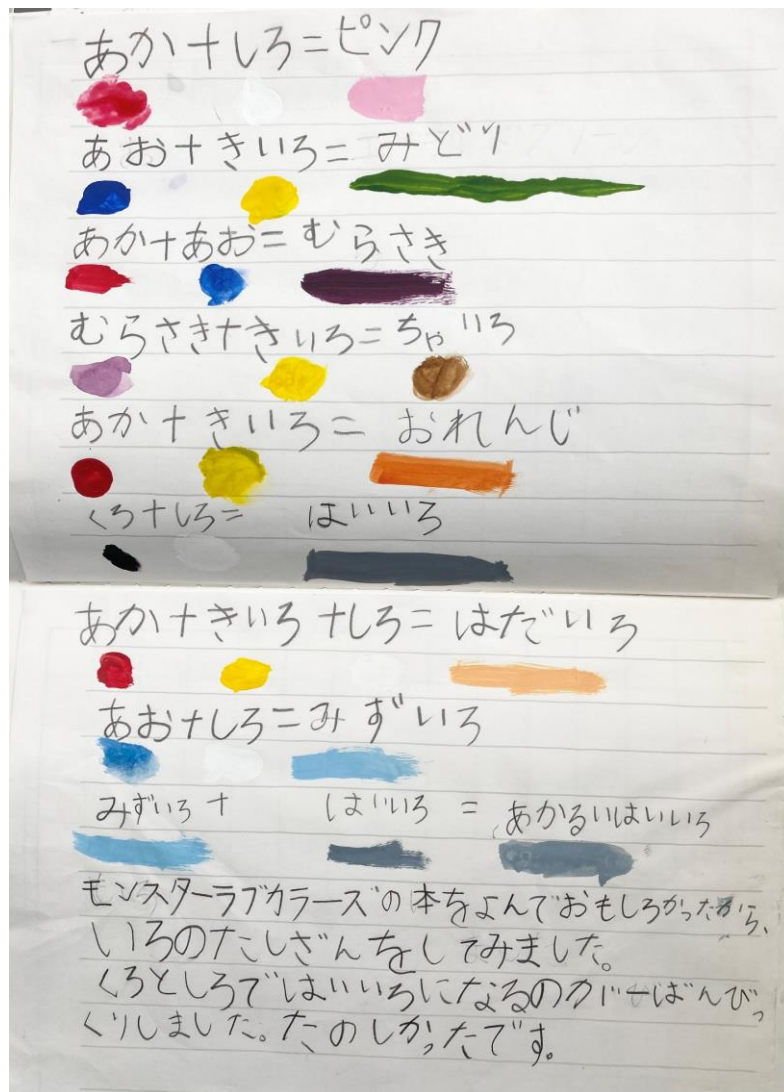 あか+しろ=ピンク
あお+きいろ=みどり
あか+あお=むらさき
むらさき+きいろ=ちゃいろ
あか+きいろ=おれんじ
くろ+しろ=はいいろ
あか+きいろ+しろ=はだいろ
あお+しろ=みずいろ
みずいろ+はいいろ=あかるいはいいろ
モンスターラブカラーズの本をよんでおもしろかったから、
いろのたしざんをしてみました。
くろとしろではいいろになるのが一ばんびっ
くりしました。たのしかったです。